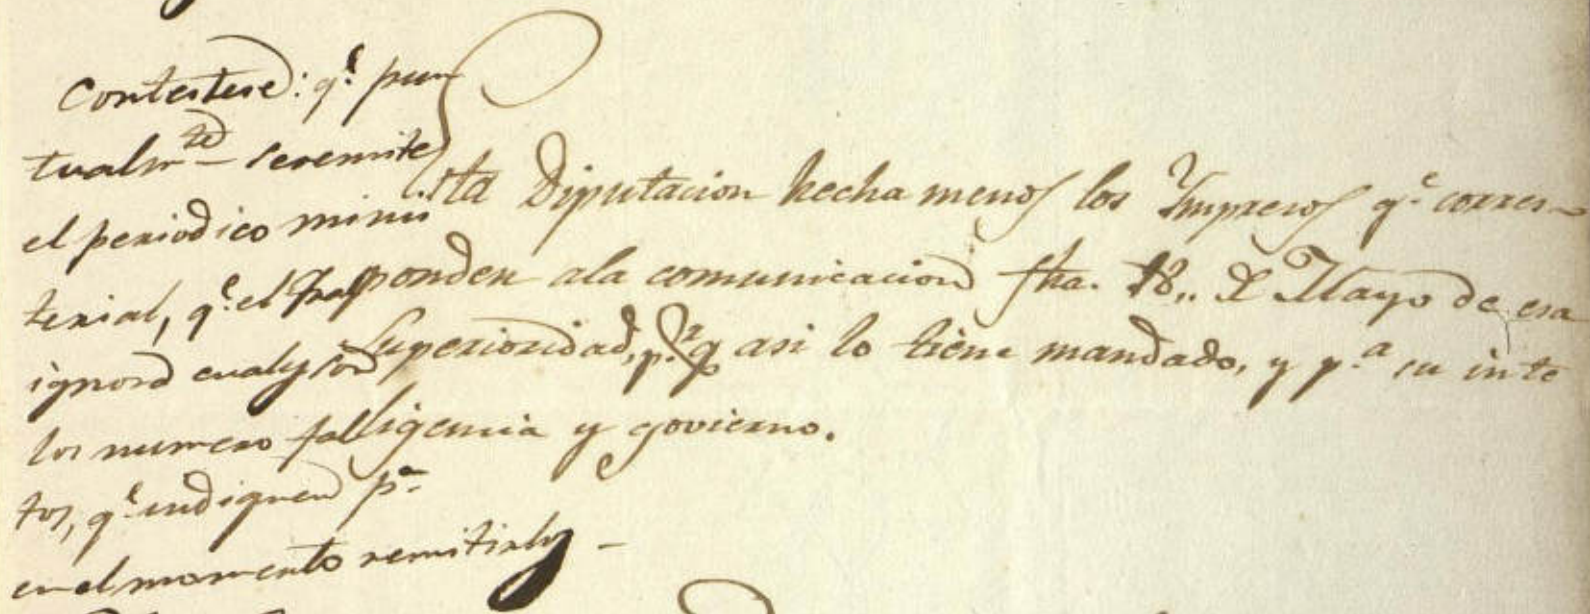 Contestese: q.e pun
tualm.te seremite
el periodico minis
terial, q.e el
ignora cuales son
los numero fal
tos, q.e indiquen p.a
en el momento remitirlos –
Esta Diputacion hecha menos los Ympresos q.e corres–
ponden ala comunicacion fha. 18,, d Mayo de esa
Superioridad, p.r q asi lo tiene mandado, y p.a su inte
ligencia y govierno.